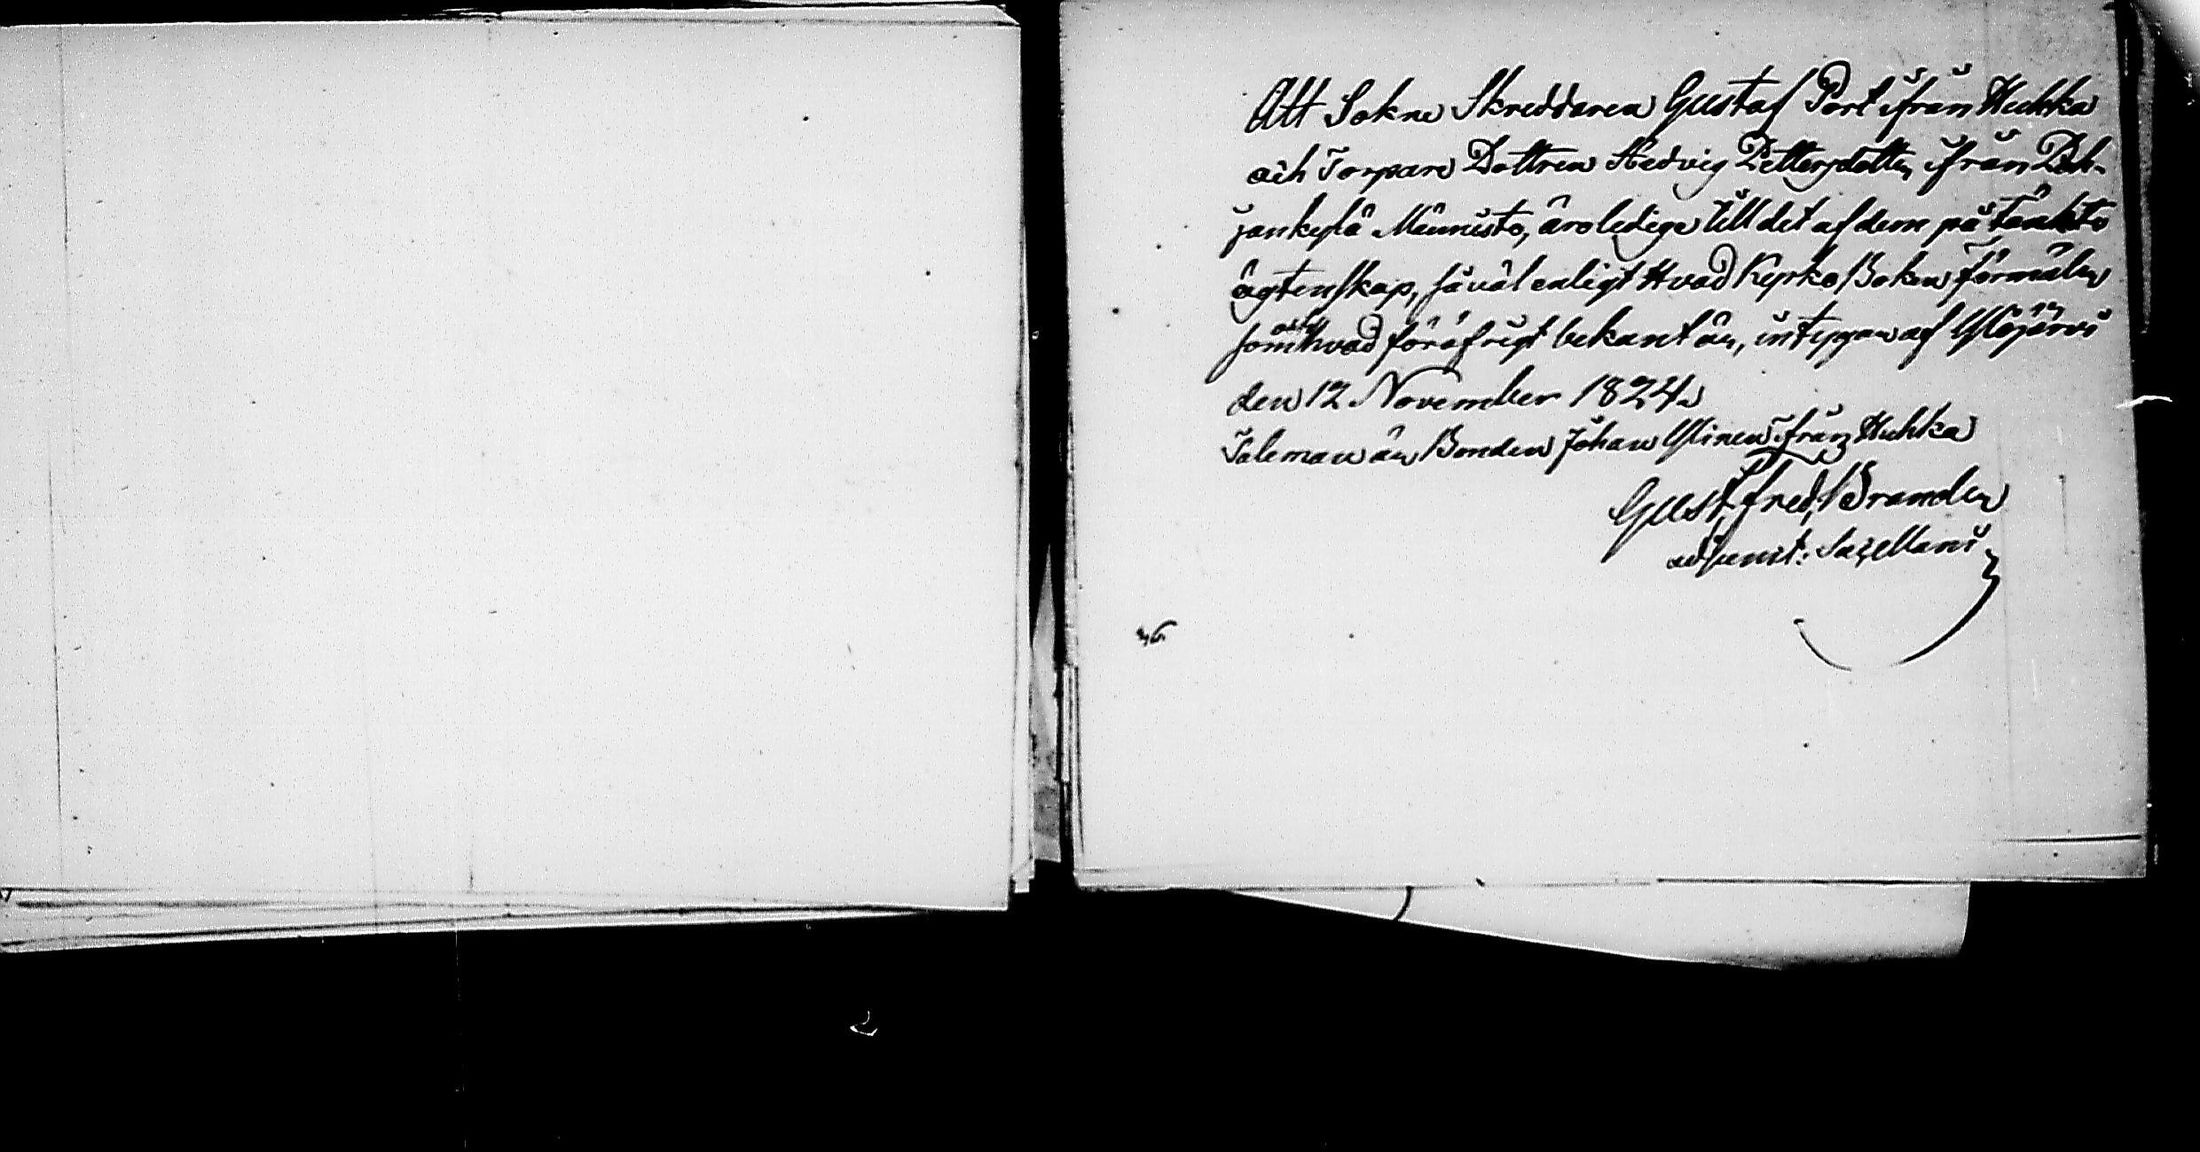 Att Sokne Skreddaren Gustaf Port ifrån Huhka
och Torpare Dottren Hedvig Pettersdotter ifrån Poh-
jankylä Männistö, äro ledige till det af dem påtänkte
ägtenskap, så väl enligt Hvad Kyrko Boken förmäler
som hvad föröfrigt bekant är, intygar af Ylöjärvi
den 12 November 1824.
Taleman är Bonden Johan Ylinen ifrån Huhka
Gust. Fred. Brander
adjunct: Sacellani